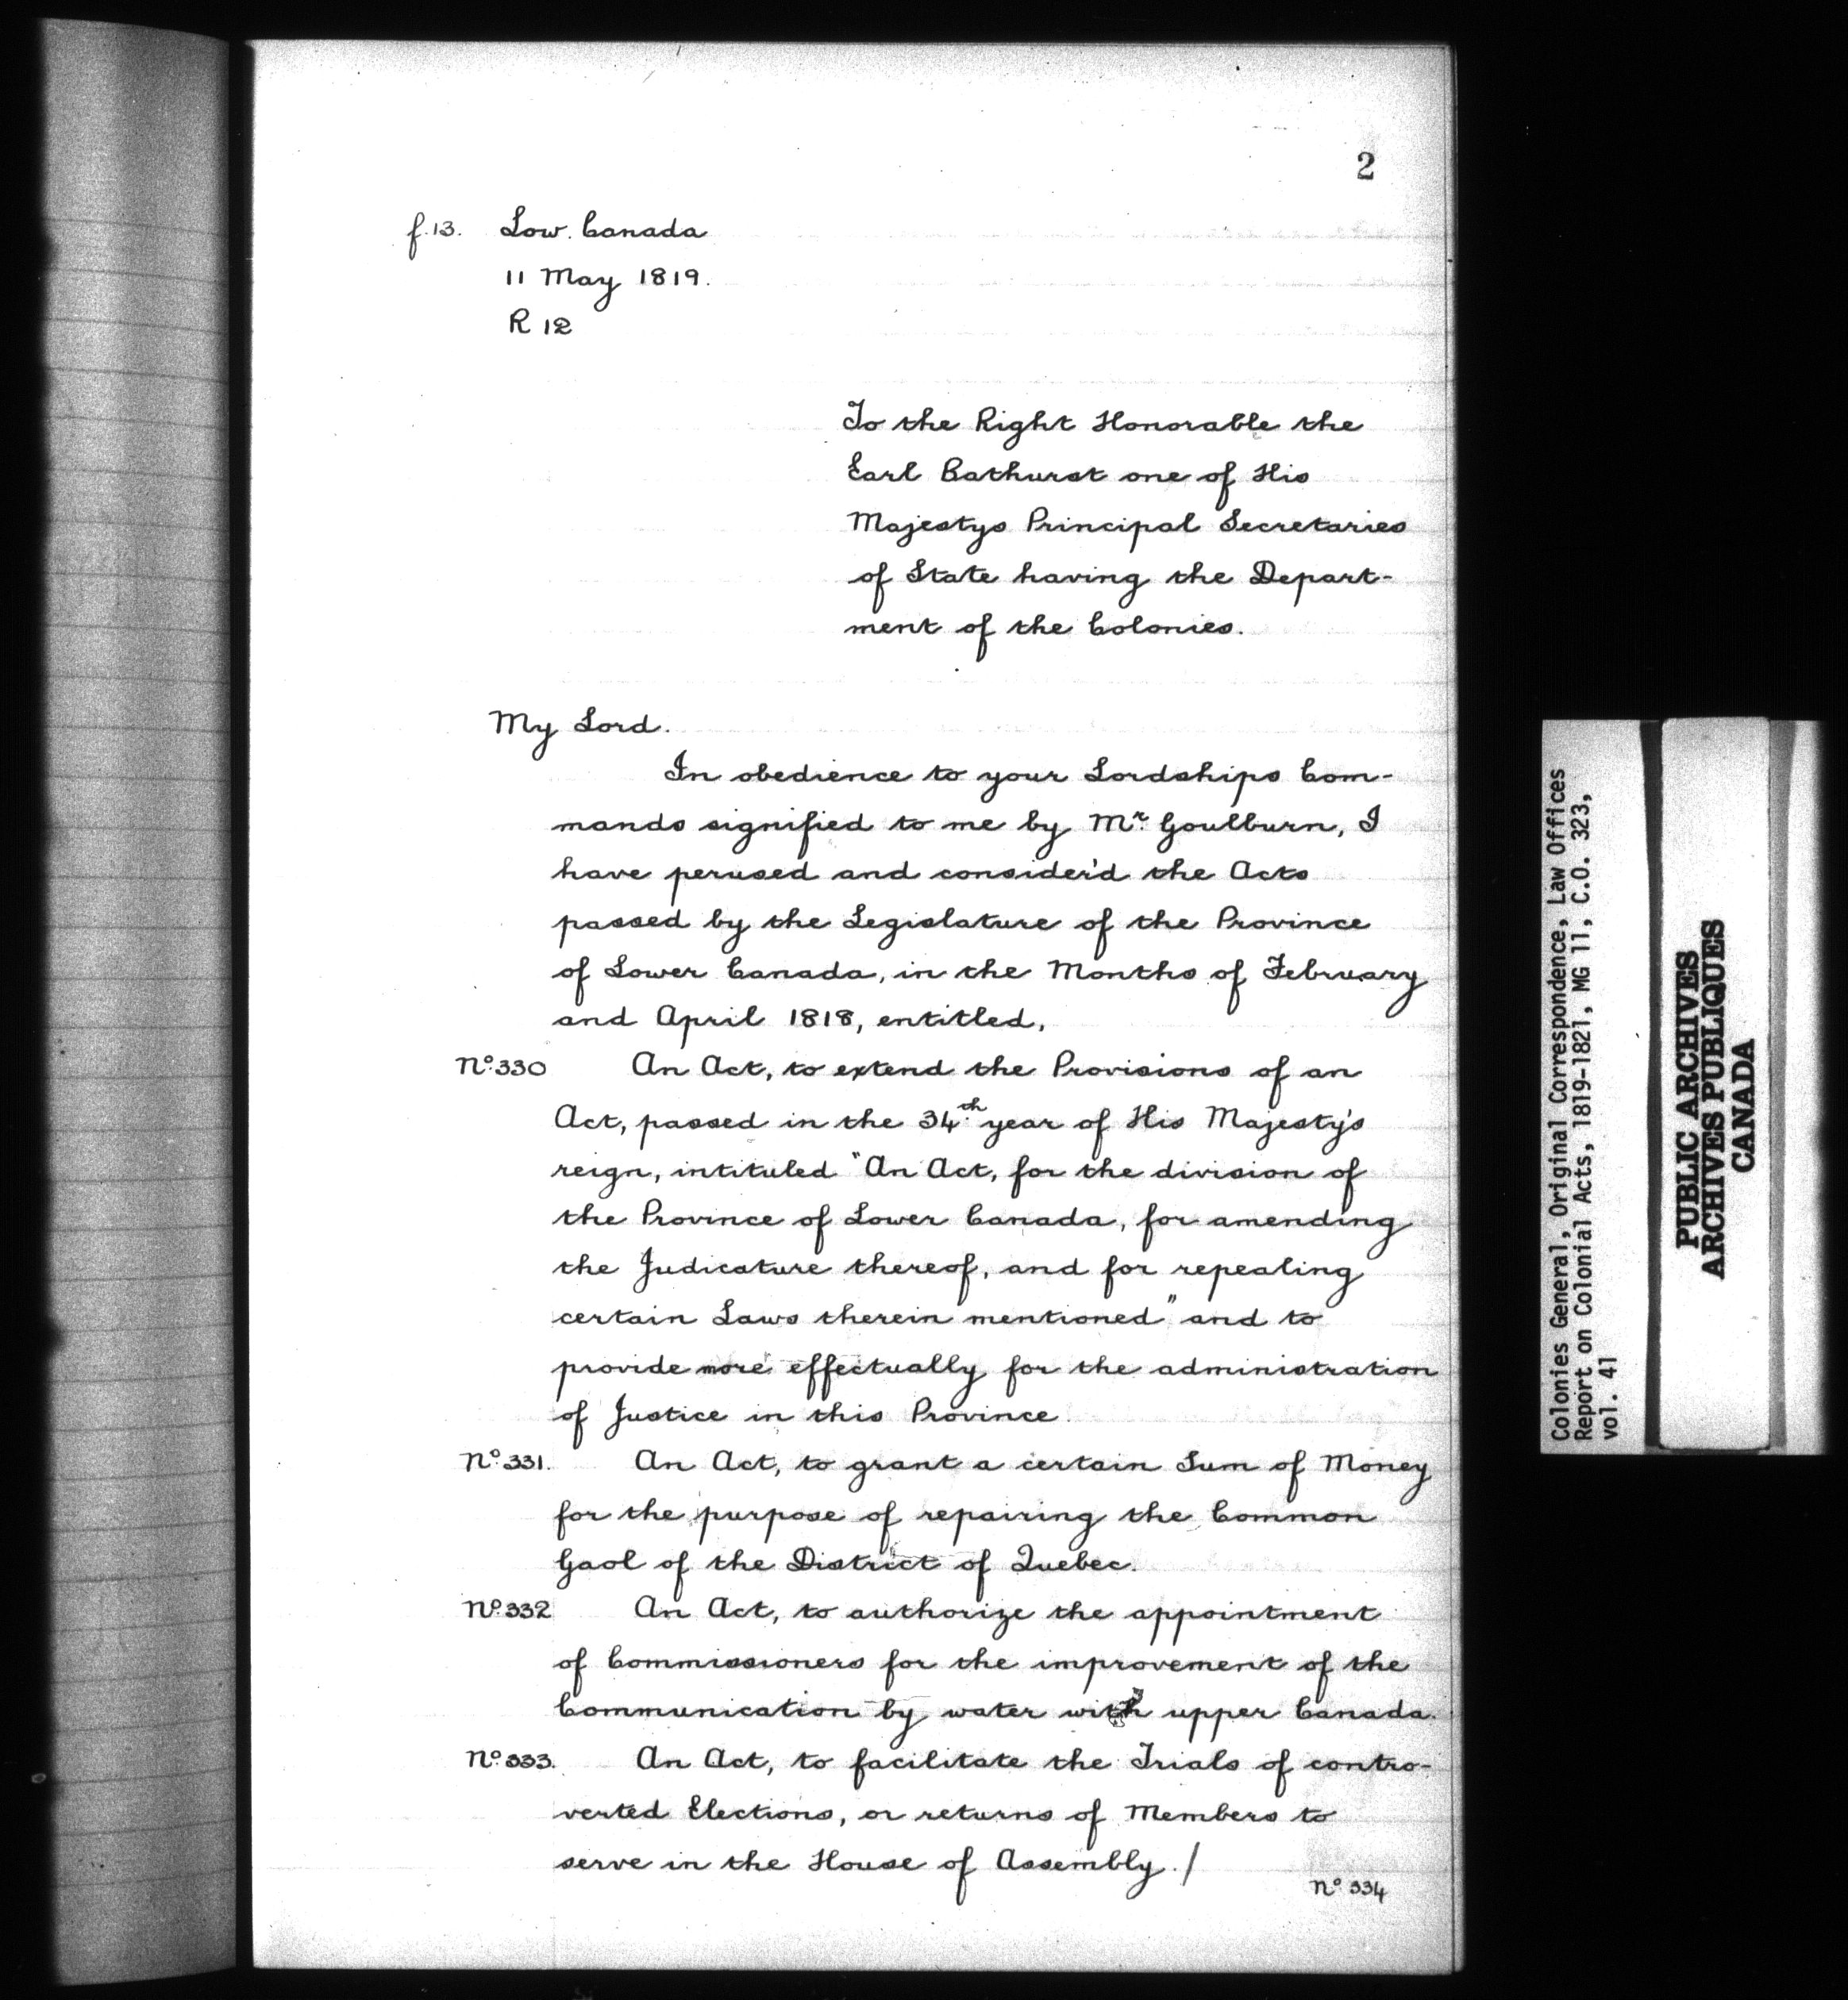 2
f.13. Low. Canada
11 May 1819.
R 12
To the Right Honorable the
Earl Bathurst one of His
Majestys Principal Secretaries
of State having the Depart-
ment of the Colonies.
My Lord.
In obedience to your Lordships Com-
mands signified to me by Mr. Goulburn, I
have perused and consider'd the Acts
passed by the Legislature of the Province
of Lower Canada, in the Months of February
and April 1818, entitled,
No. 330 An Act, to extend the Provisions of an
Act, passed in the 34th. year of His Majesty's
reign, intituled "An Act, for the division of
the Province of Lower Canada, for amending
the Judicature thereof, and for repealing
certain Laws therein mentioned" and to
provide more effectually for the administration
of Justice in this Province.
No. 331. An Act, to grant a certain Sum of Money
for the purpose of repairing the Common
Gaol of the District of Quebec.
No. 332 An Act, to authorize the appointment
of Commissioners for the improvement of the
Communication by water with upper Canada.
No. 333. An Act, to facilitate the Trials of contro-
verted Elections, or returns of Members to
serve in the House of Assembly./
No. 334
Colonies General, Original Correspondence, Law Offices
Report on Colonial Acts, 1819-1821, MG 11, C.O. 323,
vol. 41
PUBLIC ARCHIVES
ARCHIVES PUBLIQUES
CANADA